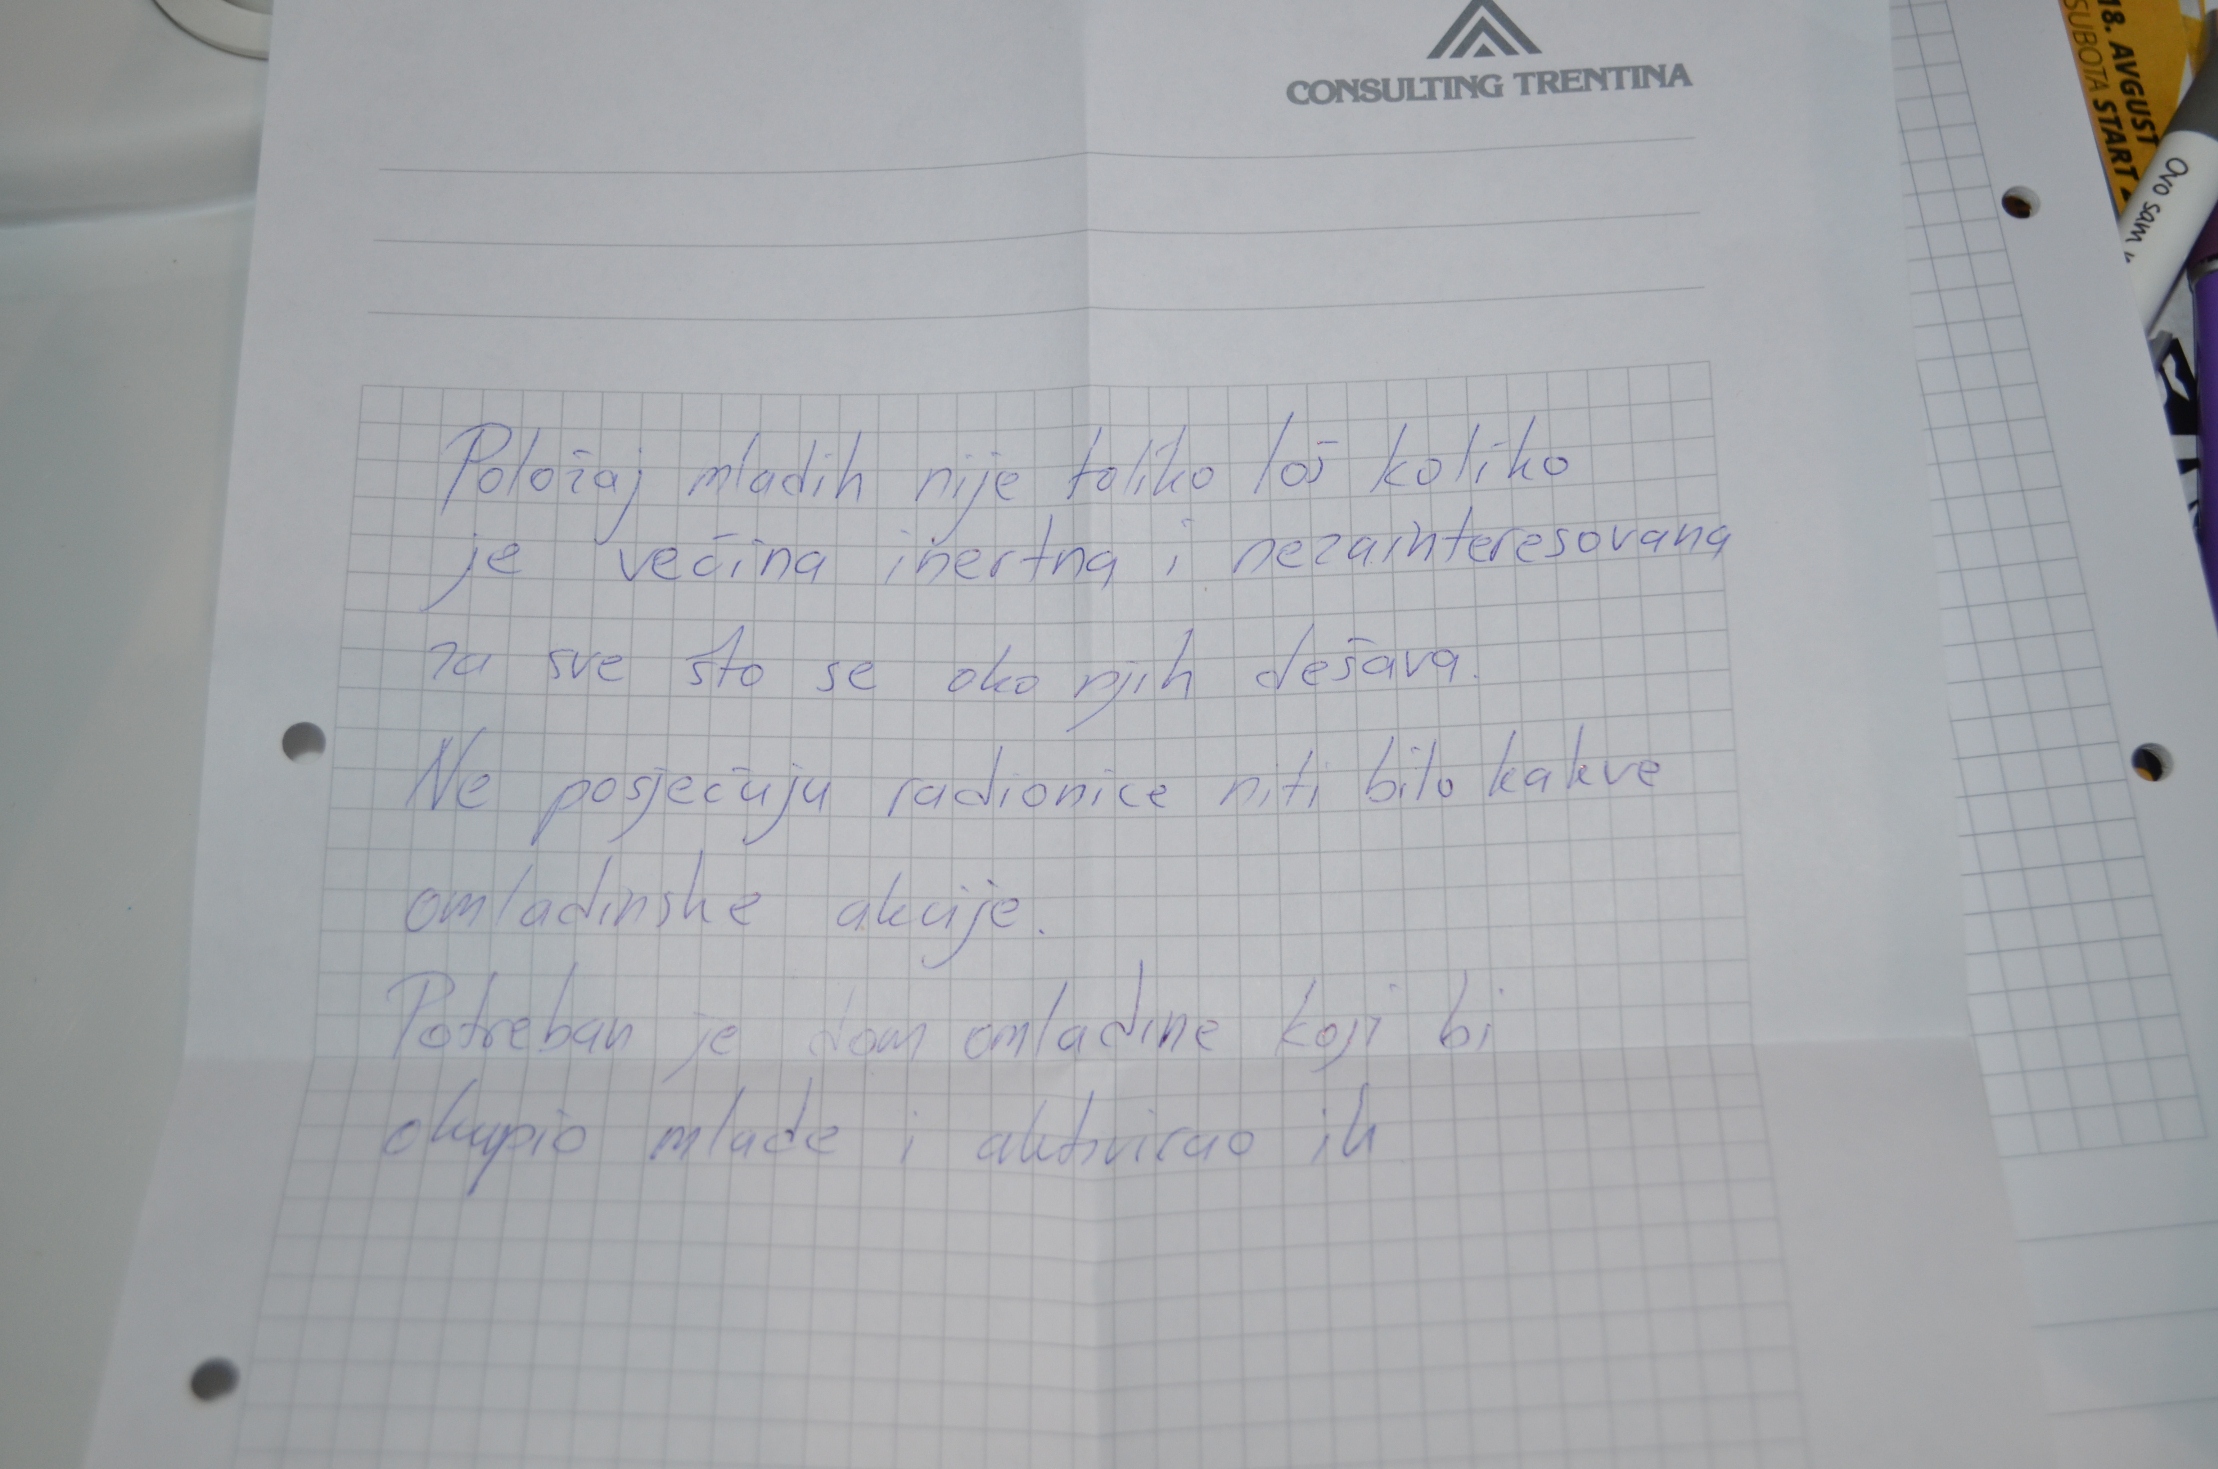 CONSULTING TRENTINA
Položaj mladih nije toliko loš koliko
je većina inertna i nezainteresovana
za sve što se oko njih dešava.
Ne posjećuju radionice niti bilo kakve
omladinske akcije.
Potreban je dom omladine koji bi
okupio mlade i aktivirao ih
18. AVGUST
SUBOTA START
Ovo sam